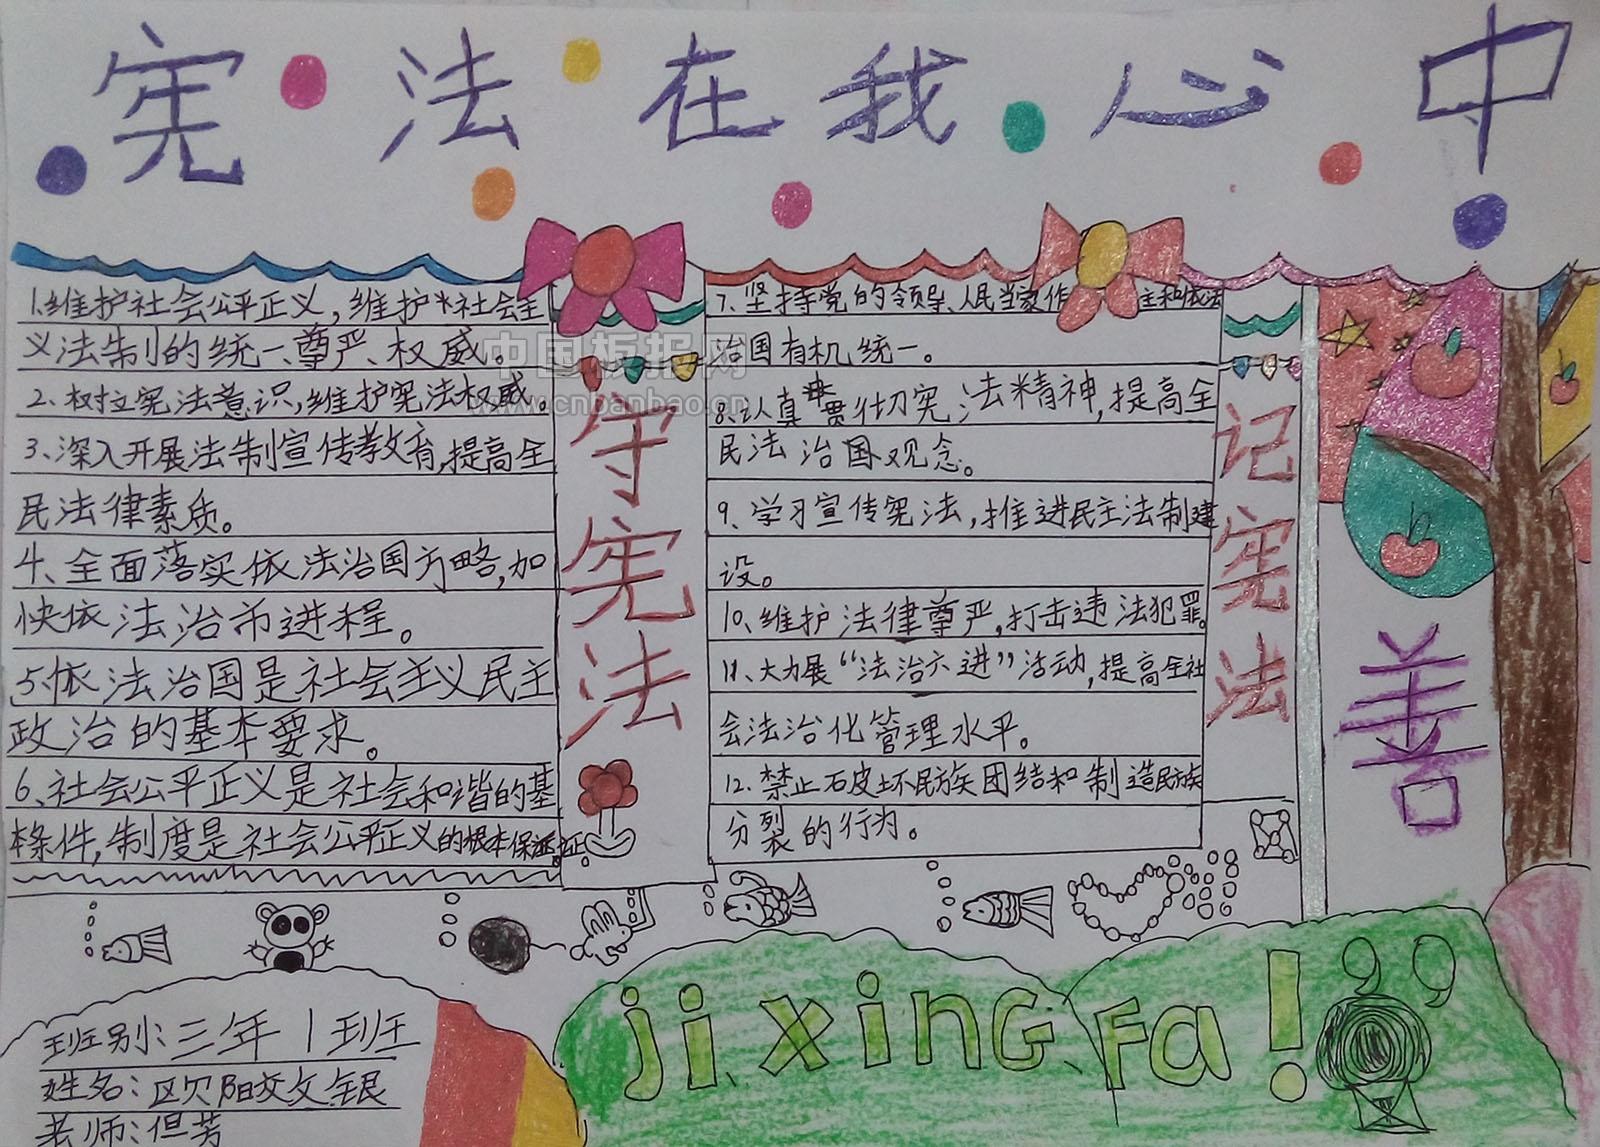 宪法在我心中
1.维护社会公平正义，维护社会主
义法制的统一、尊严、权威。
2、树立宪法意识，维护宪法权威。
3、深入开展法制宣传教育，提高全
民法律素质。
4、全面落实依法治国方略，加
快依法治市进程。
5、依法治国是社会主义民主
政治的基本要求。
6、社会公平正义是社会和谐的基
本条件，制度是社会公平正义的根本保证。
守宪法
7、坚持党的领导、人民当家作主和依法
治国有机统一。
8、认真贯彻切宪法精神，提高全
民法治国观念。
9、学习宣传宪法，推进民主法制建
设。
10、维护法律尊严，打击违法犯罪。
11、大力展“法治六进”活动，提高全社
会法治化管理水平。
12、禁止破坏民族团结和制造民族
分裂的行为。
记宪法
善
中国板报网
www.cnbanbao.cn
班别：三年1班
姓名：欧阳文银
老师：但芳
ji xing Fa！